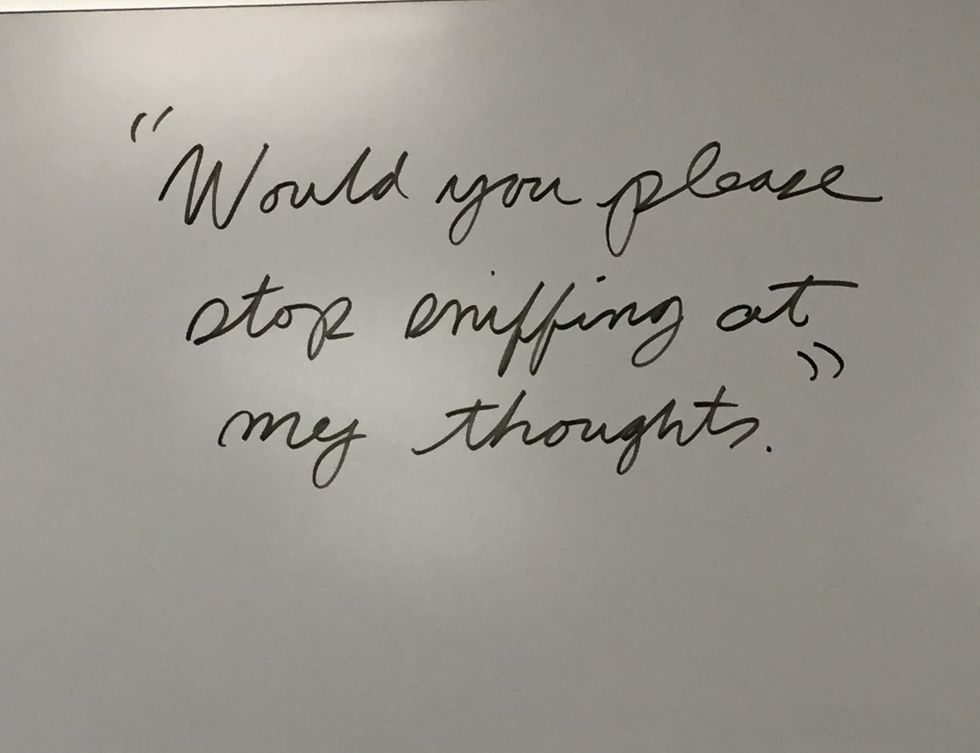 "Would you please
stop sniffing at
my thoughts."